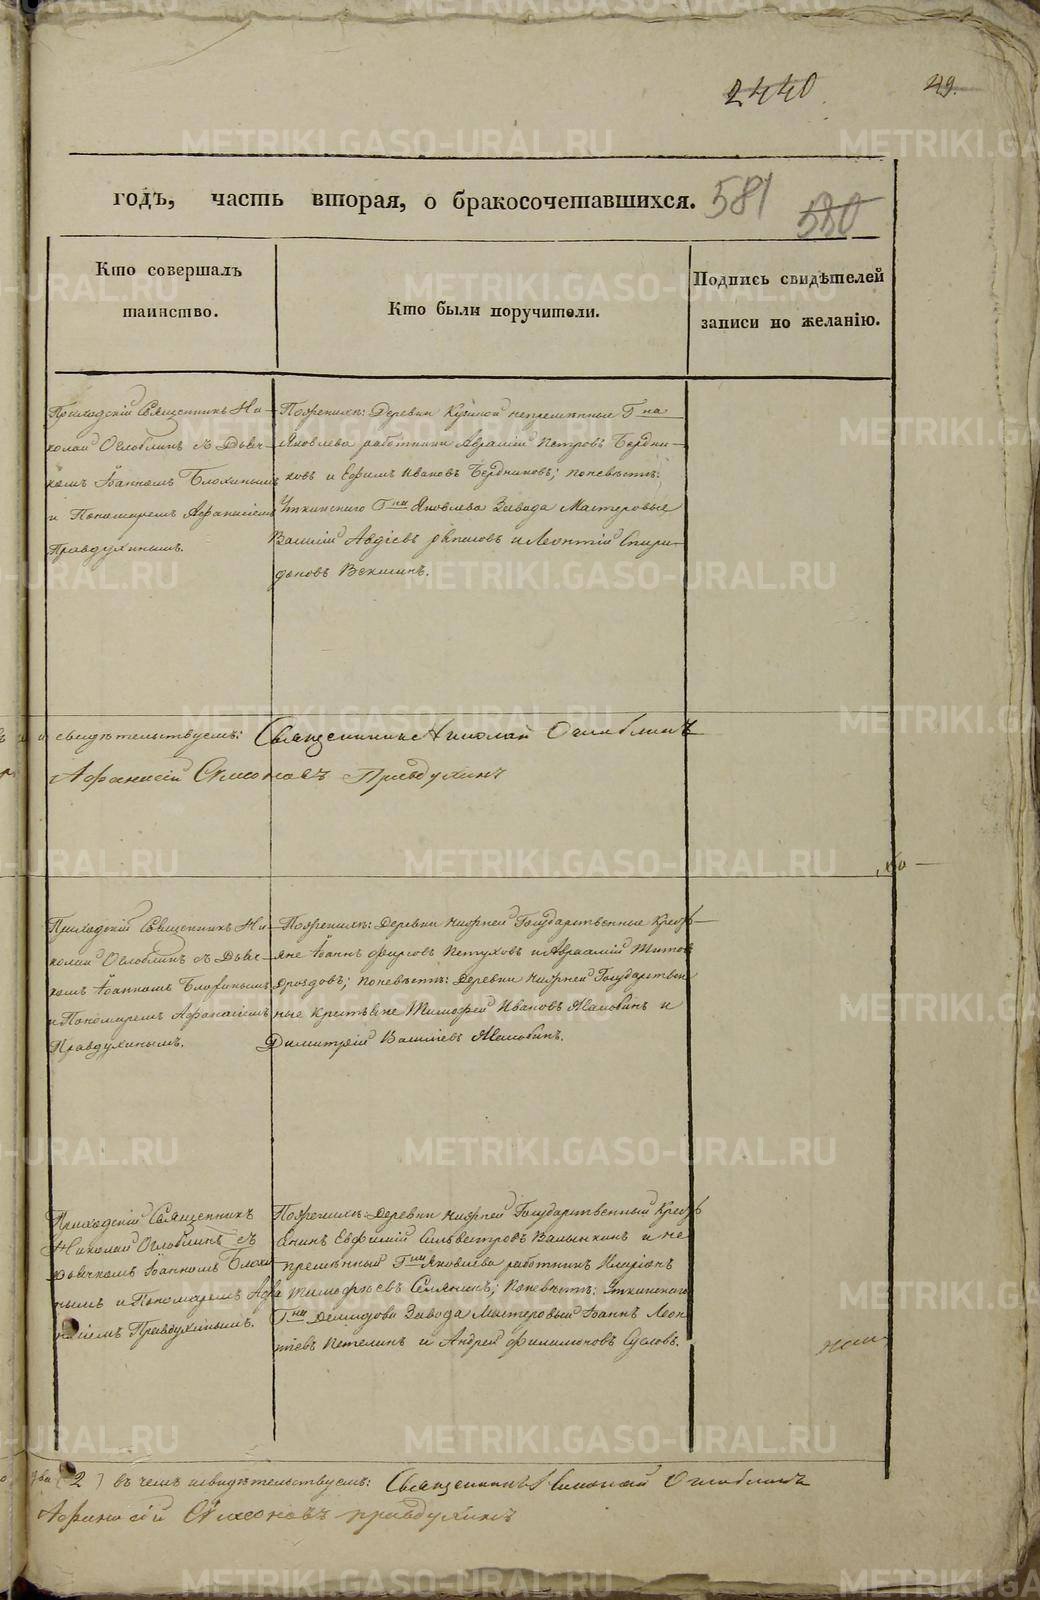 2440
49.
годъ, часть вторая, о бракосочетавшихся.
581
580
Кто совершалъ
таинство.
Кто были поручители.
Подпись свидѣтелей
записи по желанію.
Приходскій Священникъ Ни-
колай Оглоблинъ съ Дьяч-
комъ Іоанномъ Блохинымъ
и Пономаремъ Афанасіемъ
Правдухинымъ.
По женихѣ: Деревни Кузиной непремѣнные Г-на
Яковлева работники Авраамій Петровъ Бердни-
ковъ и Ефимъ Ивановъ Бердниковъ; по невѣстѣ:
Уткинскаго Г-на Яковлева Завода Мастеровые
Василій Авдіевъ и Леонтій Спири-
доновъ Векшинъ.
и свидѣтельствуемъ: Священникъ Николай Оглоблинъ
Афанасій Симоновъ Правдухинъ
Приходскій Священникъ Ни-
колай Оглоблинъ съ Дьяч-
комъ Іоанномъ Блохинымъ
и Пономаремъ Афанасіемъ
Правдухинымъ.
По женихѣ: Деревни Нижней Государственные Кресть-
яне Іоаннъ Фирсовъ Петуховъ и Авраамій Титовъ
Дроздовъ; по невѣстѣ: Деревни Нижней Государствен
ные Крестьяне Тимофей Ивановъ и
Димитрій Василіевъ
Приходскій Священникъ
Николай Оглоблинъ съ
Дьячкомъ Іоанномъ Блохи
нымъ и Пономаремъ Афа
насіемъ Правдухинымъ.
По женихѣ: Деревни Нижней Государственный Кресть
янинъ Евфимій Сильвестровъ Валынкинъ и не
премѣнный Г-на Яковлева работникъ Иларіонъ
Тимофѣевъ Семянинъ; По невѣстѣ: Уткинскаго
Г-на Демидова Завода Мастеровый Іоаннъ Леон
тіевъ Петелинъ и Андрей Филимоновъ Сусловъ.
два (2) въ чемъ и свидѣтельствуемъ: Священникъ Николай Оглоблинъ
Афанасій Симоновъ Правдухинъ
METRIKI.GASO-URAL.RU